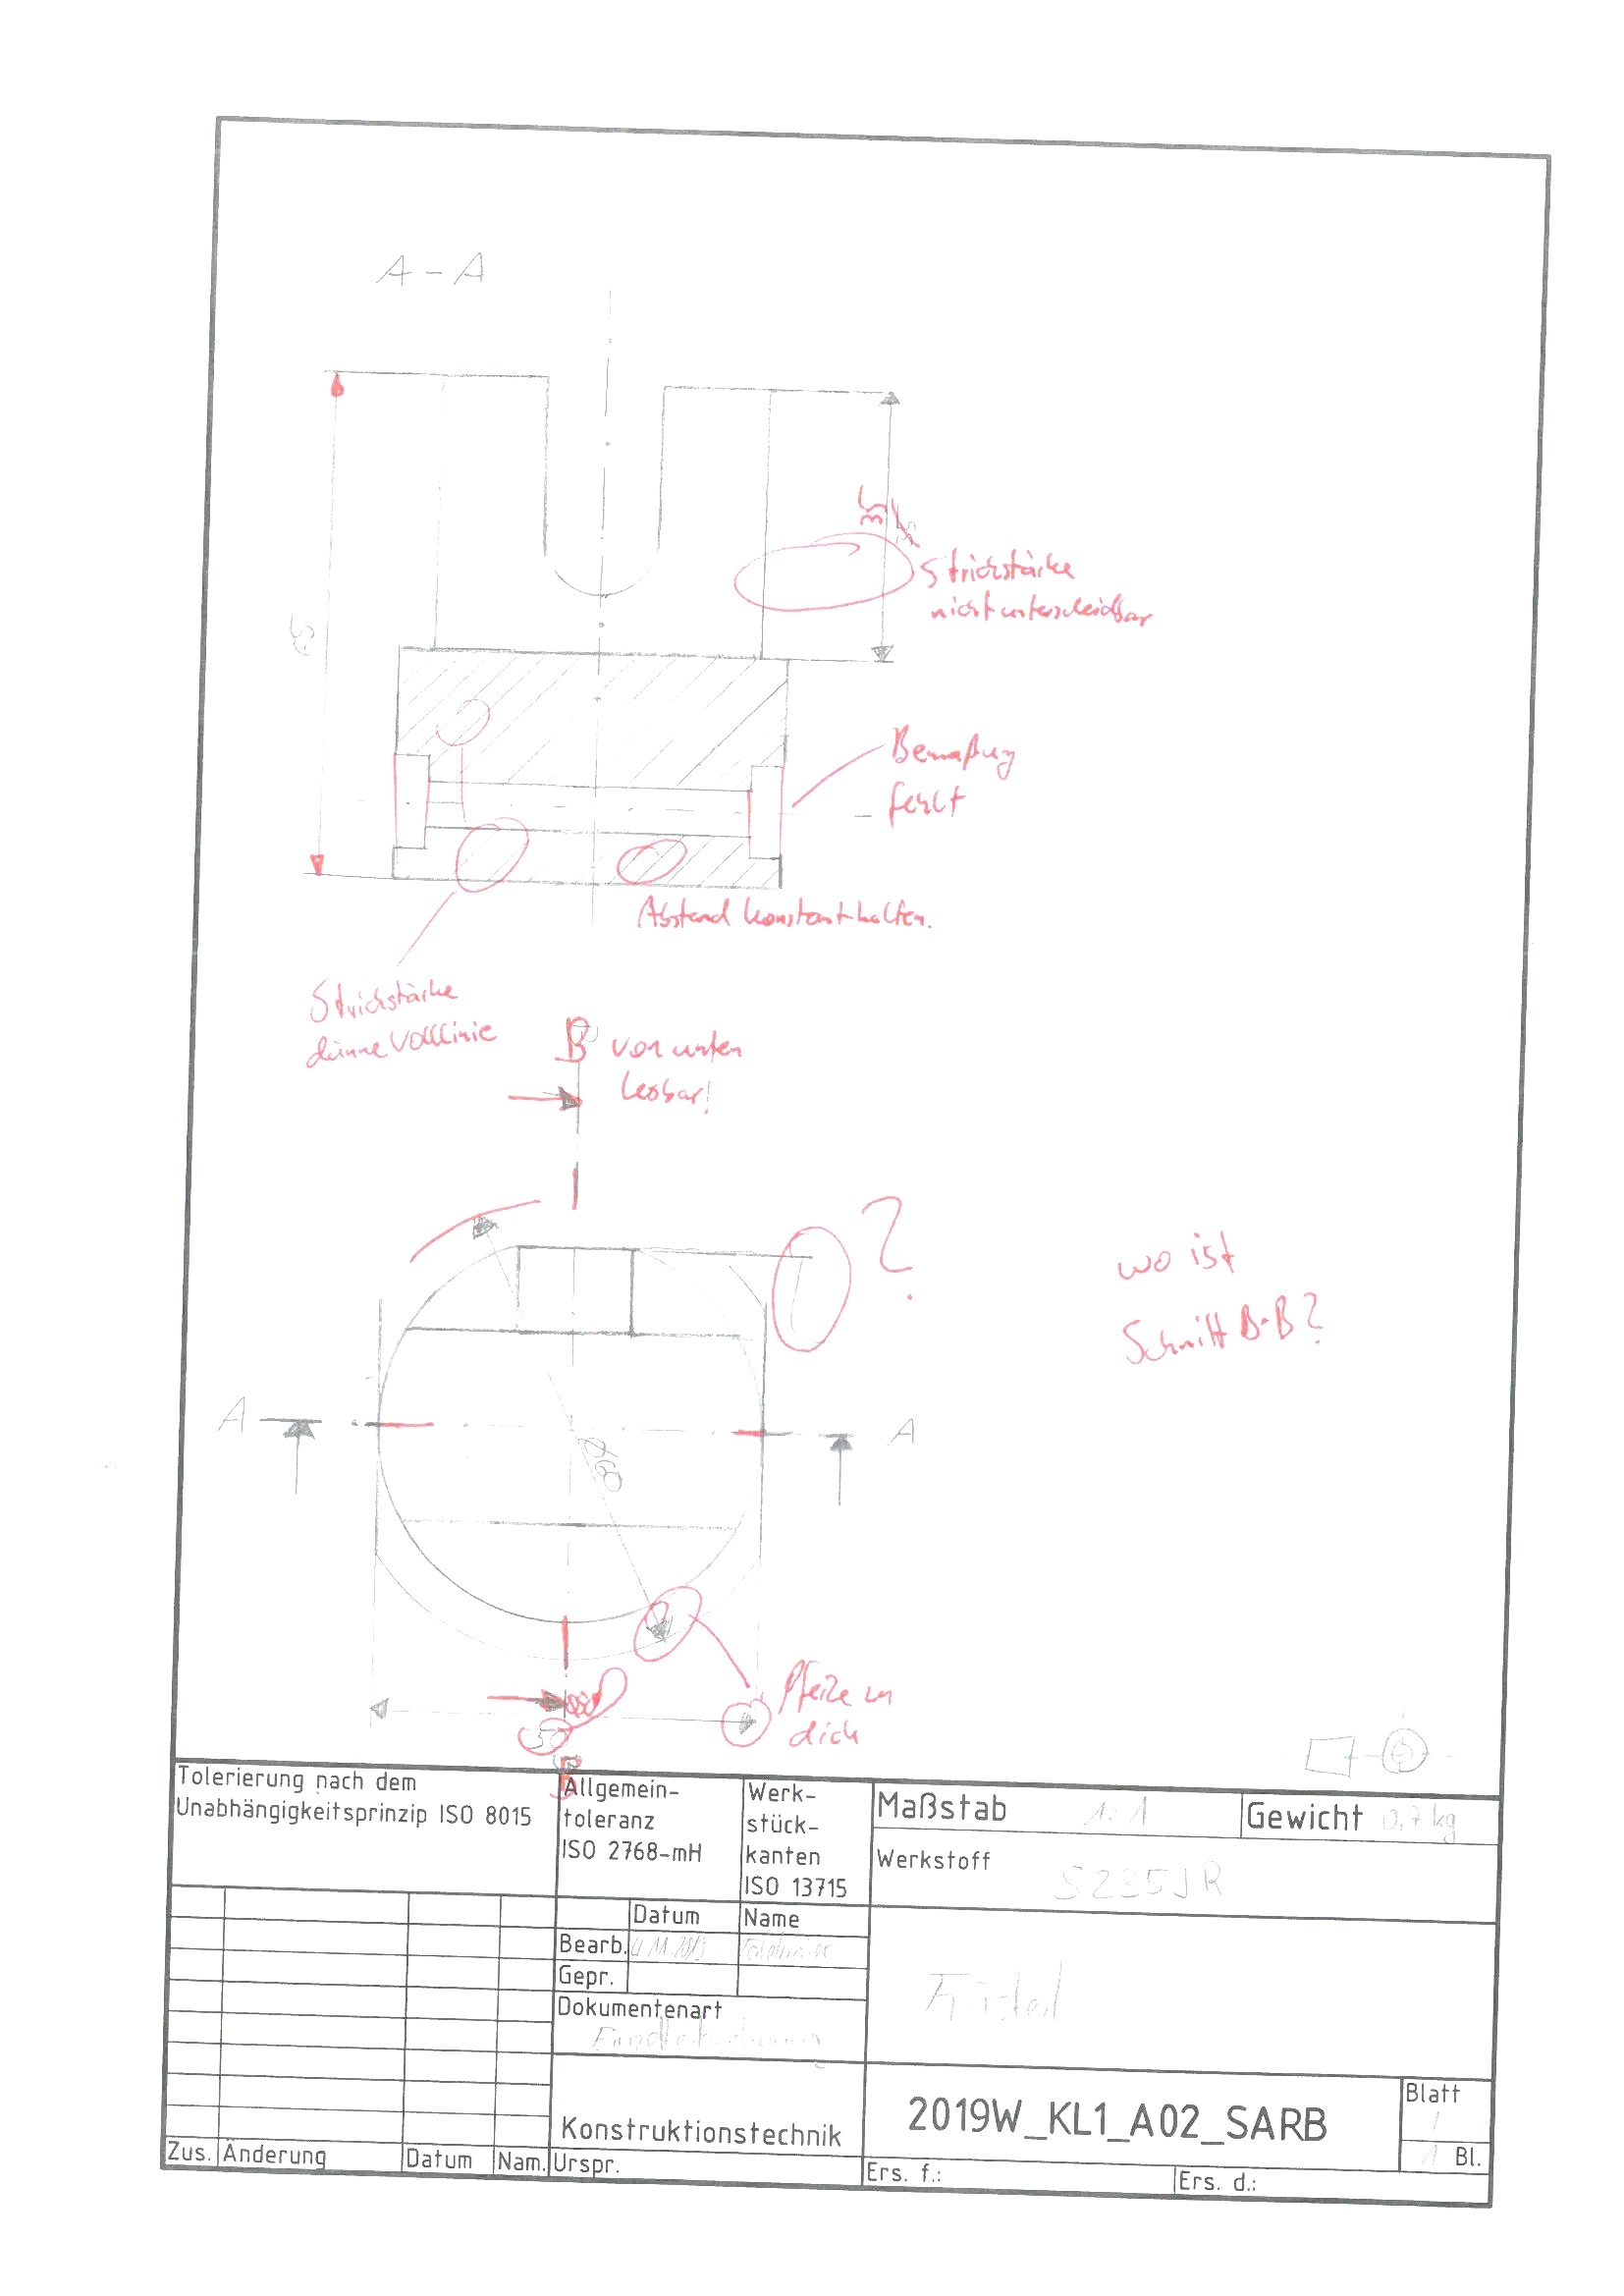 A - A
35
Strichstärke
nicht unterscheidbar
65
Bemaßung
fehlt
Abstand konstant halten.
Strichstärke
dünne Volllinie
B von unten
lesbar!
?
wo ist
Schnitt B-B?
A
A
Ø60
Pfeile zu
dick
50
B
Tolerierung nach dem
Unabhängigkeitsprinzip ISO 8015
Allgemein-
toleranz
ISO 2768-mH
Werk-
stück-
kanten
ISO 13715
Maßstab 1:1
Gewicht 0,7 kg
Werkstoff S235JR
Datum Name
Bearb.
Gepr.
Dokumentenart
Frästeil
Konstruktionstechnik
2019W_KL1_A02_SARB
Blatt
1
1 Bl.
Zus. Änderung Datum Nam. Urspr.
Ers. f.:
Ers. d.: